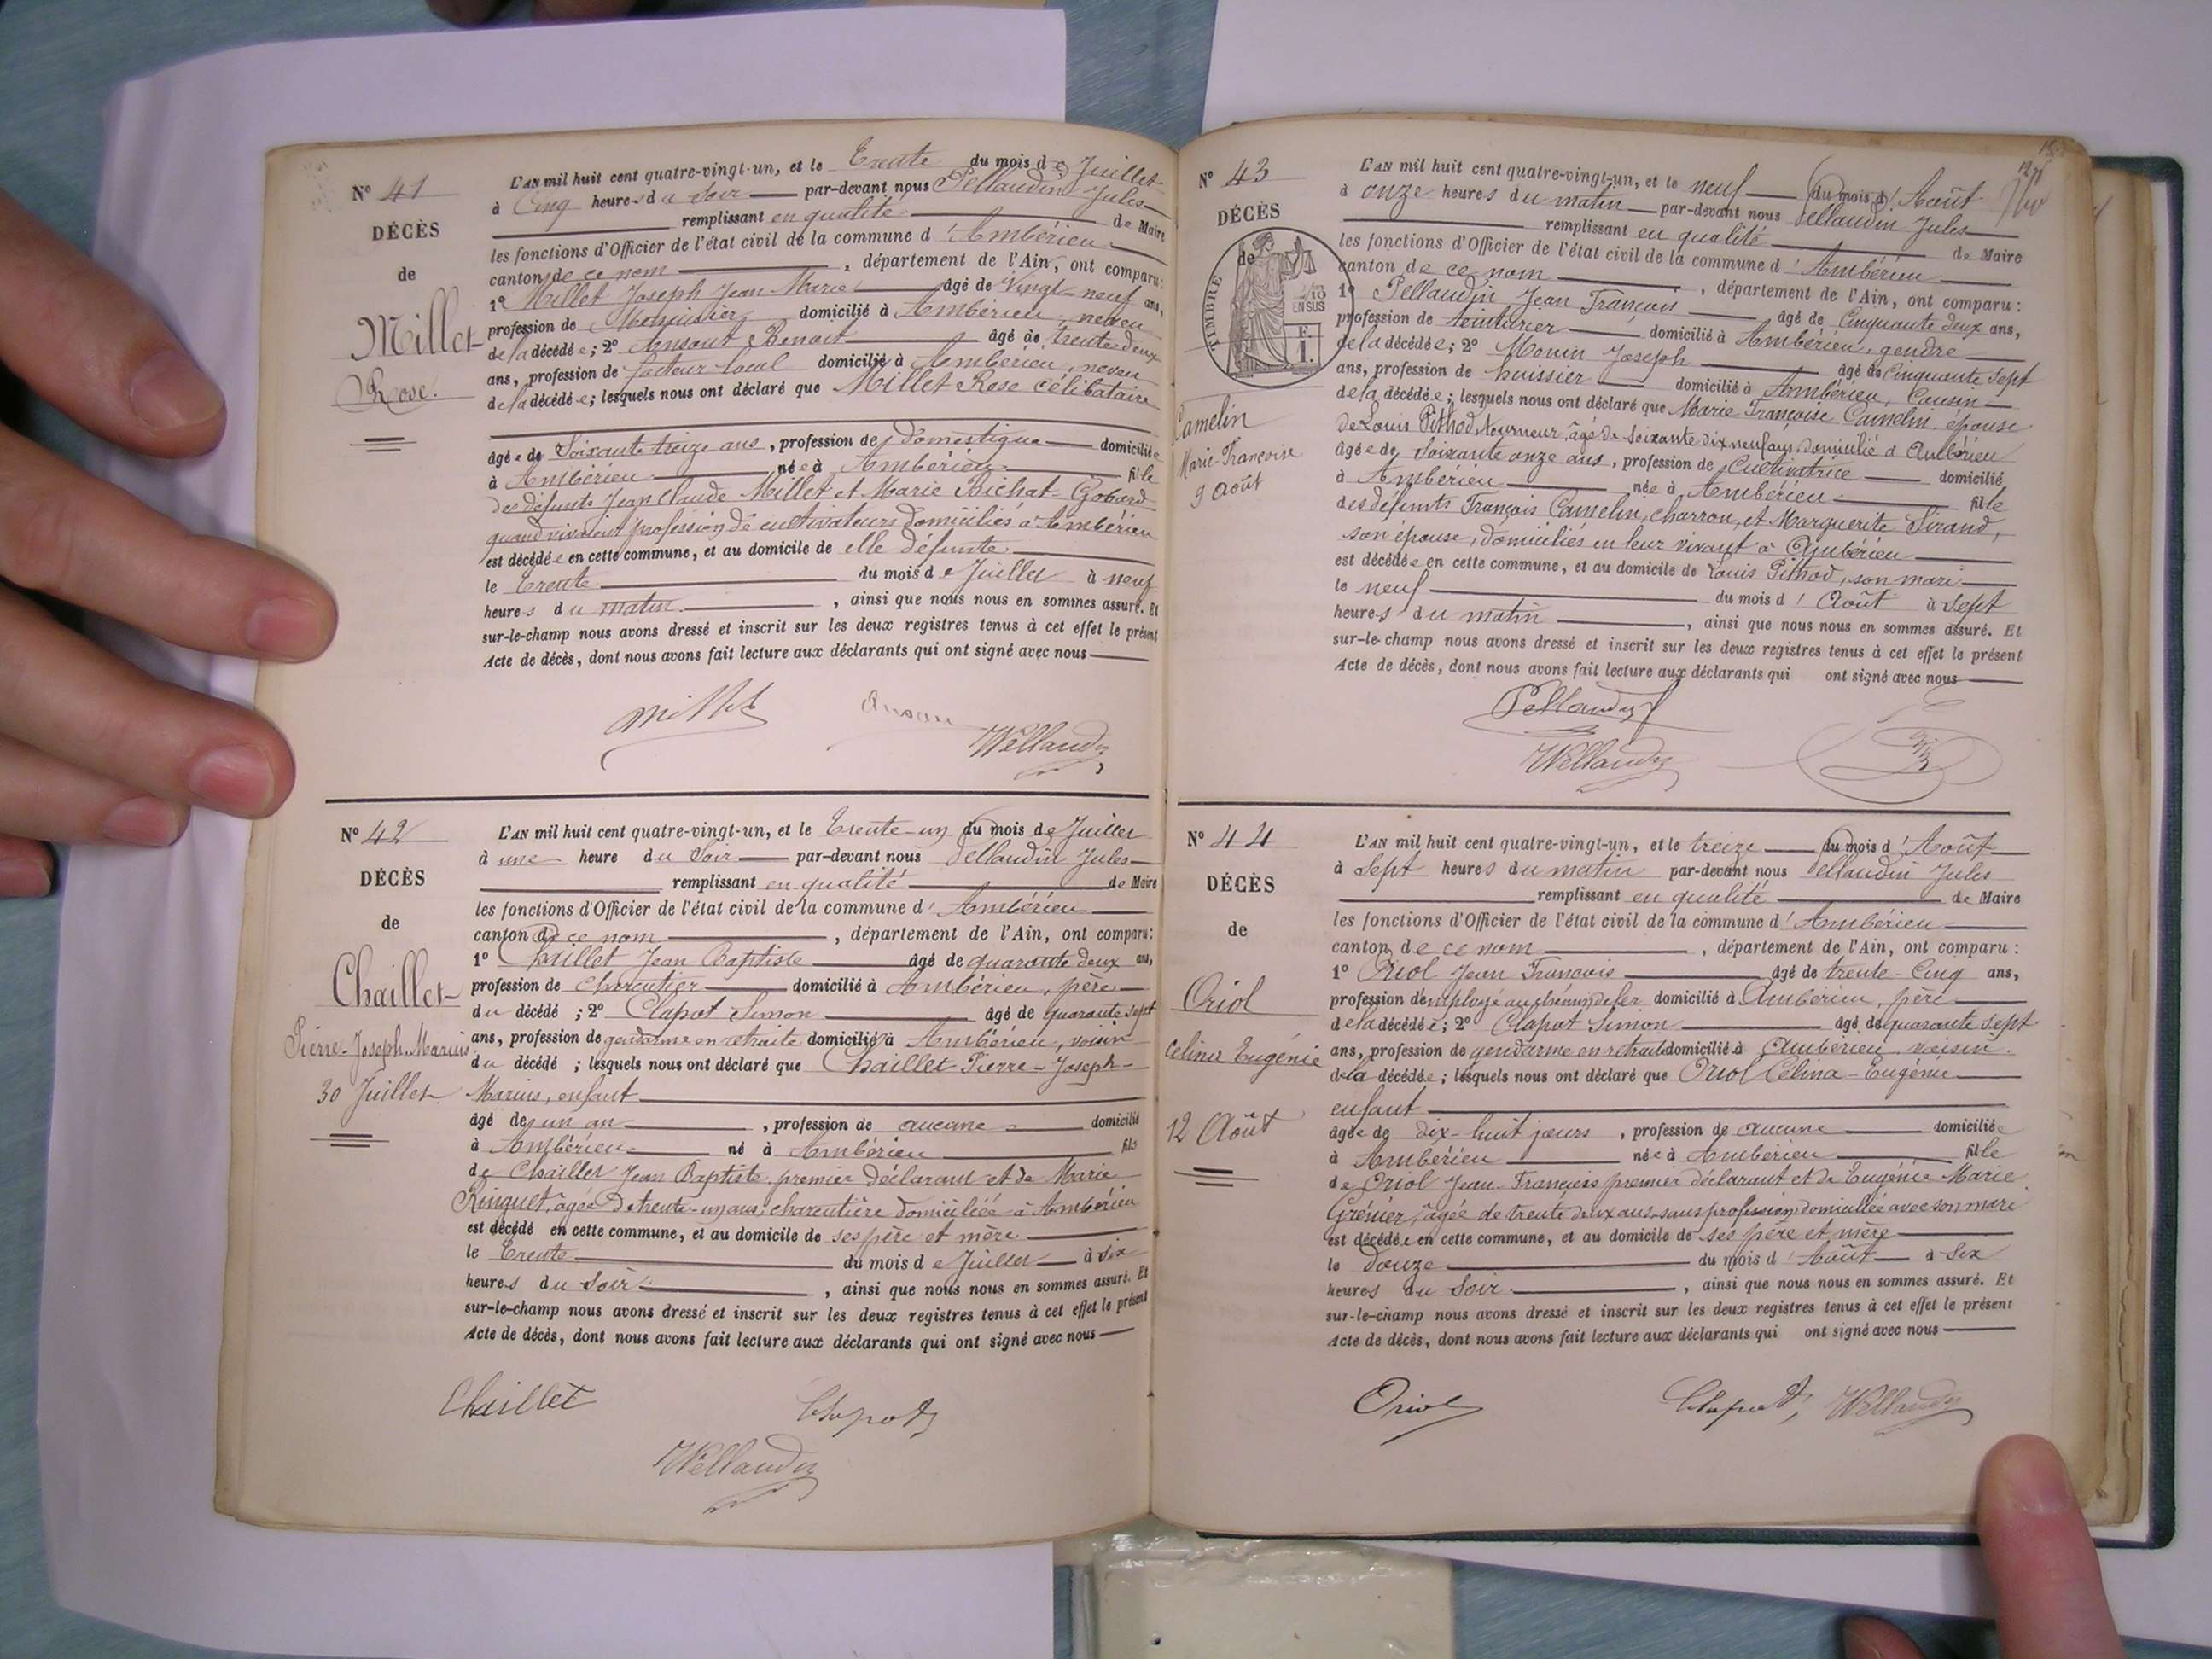 N° 41
DÉCÈS
de
Millet
Rose.
L'AN mil huit cent quatre-vingt-un, et le Trente du mois de Juillet
à Cinq heures du Soir par-devant nous Pellaudin Jules
remplissant en qualité de Maire
les fonctions d'Officier de l'état civil de la commune d'Ambérieu
canton de ce nom, département de l'Ain, ont comparu:
1° Millet Joseph Jean-Marie âgé de Vingt-neuf ans,
profession de Menuisier domicilié à Ambérieu, neveu
de la décédée; 2° Ansout Benoit âgé de trente-deux
ans, profession de facteur local domicilié à Ambérieu, neveu
de la décédée; lesquels nous ont déclaré que Millet Rose célibataire
âgée de Soixante treize ans, profession de Domestique domiciliée
à Ambérieu née à Ambérieu fille
des défunts Jean Claude Millet et Marie Bichat-Gobard
quand vivaient profession de cultivateurs domiciliés à Ambérieu
est décédée en cette commune, et au domicile de elle défunte.
le trente du mois de Juillet à neuf
heures du matin, ainsi que nous nous en sommes assuré. Et
sur-le-champ nous avons dressé et inscrit sur les deux registres tenus à cet effet le présent
Acte de décès, dont nous avons fait lecture aux déclarants qui ont signé avec nous
Millet
JPellaudin
N° 42
DÉCÈS
de
Chaillet
Pierre-Joseph-Marius
30 Juillet
L'AN mil huit cent quatre-vingt-un, et le Trente-un du mois de Juillet
à une heure du Soir par-devant nous Pellaudin Jules
remplissant en qualité de Maire
les fonctions d'Officier de l'état civil de la commune d'Ambérieu
canton de ce nom, département de l'Ain, ont comparu:
1° Chaillet Jean Baptiste âgé de quarante deux ans,
profession de charcutier domicilié à Ambérieu, père
du décédé; 2° Clapot Simon âgé de quarante sept
ans, profession de gendarme en retraite domicilié à Ambérieu, voisin
du décédé; lesquels nous ont déclaré que Chaillet Pierre-Joseph-
Marius, enfant
âgé de un an, profession de aucune domicilié
à Ambérieu né à Ambérieu fils
de Chaillet Jean Baptiste, premier déclarant et de Marie
Ringuet, âgée de trente-un ans, charcutière domiciliée à Ambérieu
est décédé en cette commune, et au domicile de ses père et mère
le trente du mois de Juillet à six
heures du Soir, ainsi que nous nous en sommes assuré. Et
sur-le-champ nous avons dressé et inscrit sur les deux registres tenus à cet effet le présent
Acte de décès, dont nous avons fait lecture aux déclarants qui ont signé avec nous
Chaillet Clapot
JPellaudin
N° 43
DÉCÈS
de
TIMBRE
2/10 EN SUS
Camelin
Marie-Françoise
9 Août
L'AN mil huit cent quatre-vingt-un, et le neuf du mois d'Août
à onze heures du matin par-devant nous Pellaudin Jules
remplissant en qualité de Maire
les fonctions d'Officier de l'état civil de la commune d'Ambérieu
canton de ce nom, département de l'Ain, ont comparu:
1° Pellaudin Jean François âgé de Cinquante deux ans,
profession de teinturier domicilié à Ambérieu, gendre
de la décédée; 2° Monin Joseph âgé de Cinquante sept
ans, profession de huissier domicilié à Ambérieu, Cousin
de la décédée; lesquels nous ont déclaré que Marie Françoise Camelin, épouse
de Louis Pithod, tourneur, âgé de soixante dix neuf ans, domicilié à Ambérieu
âgée de soixante onze ans, profession de Cultivatrice domicilié
à Ambérieu née à Ambérieu fille
des défunts François Camelin, charron, et Marguerite Sirand,
son épouse, domiciliés en leur vivant à Ambérieu
est décédée en cette commune, et au domicile de Louis Pithod, son mari
le neuf du mois d'Août à sept
heures du matin, ainsi que nous nous en sommes assuré. Et
sur-le-champ nous avons dressé et inscrit sur les deux registres tenus à cet effet le présent
Acte de décès, dont nous avons fait lecture aux déclarants qui ont signé avec nous
Pellaudin
JPellaudin
N° 44
DÉCÈS
de
Oriol
Celina Eugénie
12 Août
L'AN mil huit cent quatre-vingt-un, et le treize du mois d'Août
à Sept heures du matin par-devant nous Pellaudin Jules
remplissant en qualité de Maire
les fonctions d'Officier de l'état civil de la commune d'Ambérieu
canton de ce nom, département de l'Ain, ont comparu:
1° Oriol Jean François âgé de trente-Cinq ans,
profession d'employé au chemin de fer domicilié à Ambérieu, père
de la décédée; 2° Clapot Simon âgé de quarante sept
ans, profession de gendarme en retraite domicilié à Ambérieu, voisin.
de la décédée; lesquels nous ont déclaré que Oriol Célina-Eugénie
enfant
âgée de dix-huit jours, profession de aucune domiciliée
à Ambérieu née à Ambérieu fille
de Oriol Jean-François premier déclarant et de Eugénie Marie
Grénier, âgée de trente deux ans, sans profession, domiciliée avec son mari
est décédée en cette commune, et au domicile de ses père et mère
le douze du mois d'Août à Six
heures du Soir, ainsi que nous nous en sommes assuré. Et
sur-le-champ nous avons dressé et inscrit sur les deux registres tenus à cet effet le présent
Acte de décès, dont nous avons fait lecture aux déclarants qui ont signé avec nous
Oriol Clapot JPellaudin